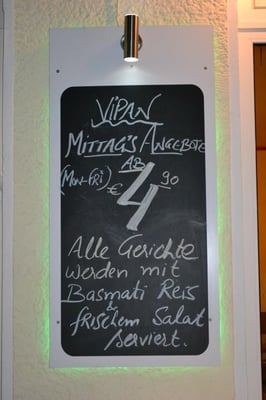 VIPAN
MITTAG'S ANGEBOTE
AB
(MON-FRI) € 4 90
Alle Gerichte
werden mit
Basmati Reis
&
frischem Salat
serviert.